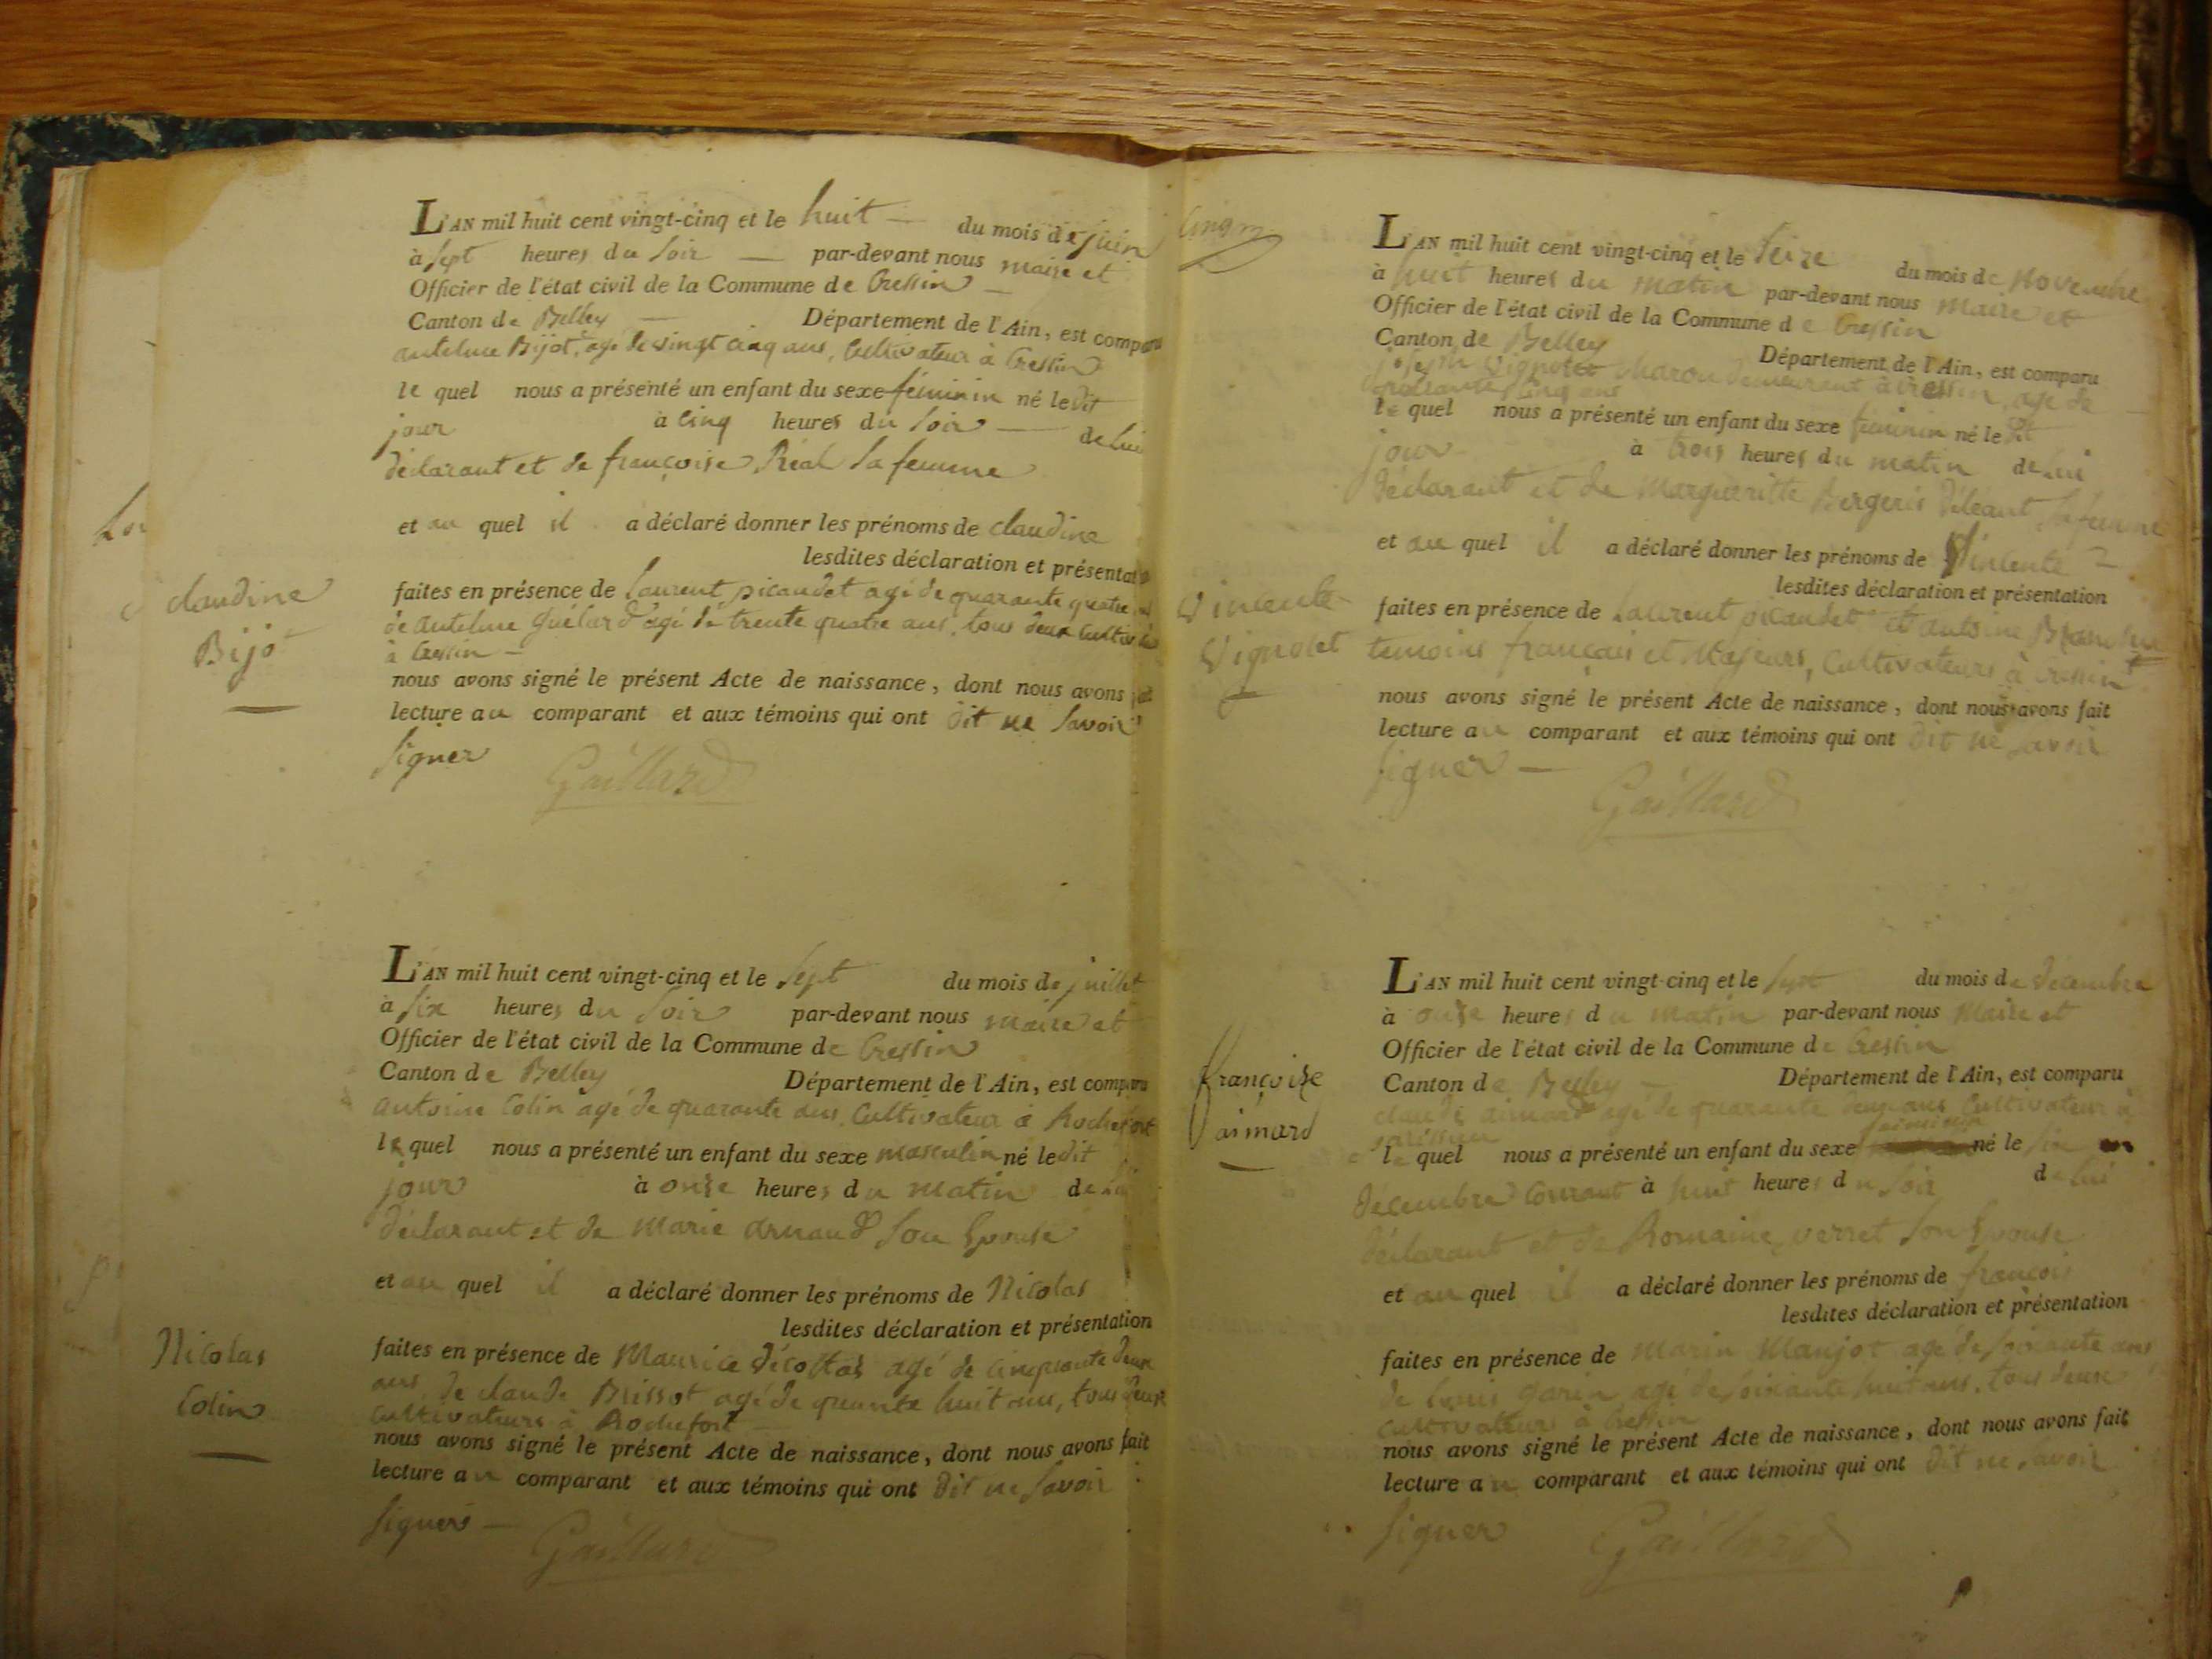 L'AN mil huit cent vingt-cinq et le huit du mois de juin
à sept heures du soir par-devant nous maire et
Officier de l'état civil de la Commune de Cressin
Canton de Belley Département de l'Ain, est comparu
antelme Bijot, agé de vingt cinq ans, Cultivateur à Cressin
le quel nous a présenté un enfant du sexe féminin né le dit
jour à cinq heures du soir de lui
déclarant et de françoise Réal sa femme
et au quel il a déclaré donner les prénoms de claudine
lesdites déclaration et présentat
faites en présence de laurent picaudet agé de quarante quatre
de antelme agé de trente quatre ans, tous deux
à Cressin
nous avons signé le présent Acte de naissance, dont nous avons
lecture au comparant et aux témoins qui ont dit ne savoir
signer
Gaillard
claudine
Bijot
L'AN mil huit cent vingt-cinq et le sept du mois de juillet
à six heures du soir par-devant nous maire et
Officier de l'état civil de la Commune de Cressin
Canton de Belley Département de l'Ain, est comparu
antoine Colin agé de quarante ans, Cultivateur à Rochefort
le quel nous a présenté un enfant du sexe masculin né le dit
jour à onze heures du matin de
déclarant et de marie arnaud son Epouse
et au quel il a déclaré donner les prénoms de Nicolas
lesdites déclaration et présentation
faites en présence de Maurice agé de cinquante deux
ans, de claude Brissot agé de huit ans, tous deux
Cultivateurs à Rochefort
nous avons signé le présent Acte de naissance, dont nous avons fait
lecture au comparant et aux témoins qui ont dit ne savoir
signer
Gaillard
Nicolas
Colin
L'AN mil huit cent vingt-cinq et le seize du mois de Novembre
à huit heures du matin par-devant nous maire et
Officier de l'état civil de la Commune de Cressin
Canton de Belley Département de l'Ain, est comparu
joseph Vignolet demeurant à Cressin, agé de
le quel nous a présenté un enfant du sexe féminin né le dit
jour à trois heures du matin de lui
déclarant et de Margueritte sa femme
et au quel il a déclaré donner les prénoms de Vincente
lesdites déclaration et présentation
faites en présence de laurent picaudet et antoine
temoins français et Majeurs, Cultivateurs à Cressin
nous avons signé le présent Acte de naissance, dont nous avons fait
lecture au comparant et aux témoins qui ont dit ne savoir
signer
Gaillard
Vincente
Vignolet
L'AN mil huit cent vingt-cinq et le sept du mois de Décembre
à onze heures du matin par-devant nous Maire et
Officier de l'état civil de la Commune de Cressin
Canton de Belley Département de l'Ain, est comparu
claude aimard agé de quarante deux ans Cultivateur à
le quel nous a présenté un enfant du sexe feminin né le six
décembre Courant à huit heures du soir de lui
déclarant et de Romaine verret son Epouse
et au quel il a déclaré donner les prénoms de françois
lesdites déclaration et présentation
faites en présence de Marin Manjot agé de soixante ans
de Louis garin agé de soixante huit ans, tous deux
Cultivateurs à Cressin
nous avons signé le présent Acte de naissance, dont nous avons fait
lecture au comparant et aux témoins qui ont dit ne savoir
signer
Gaillard
françoise
aimard